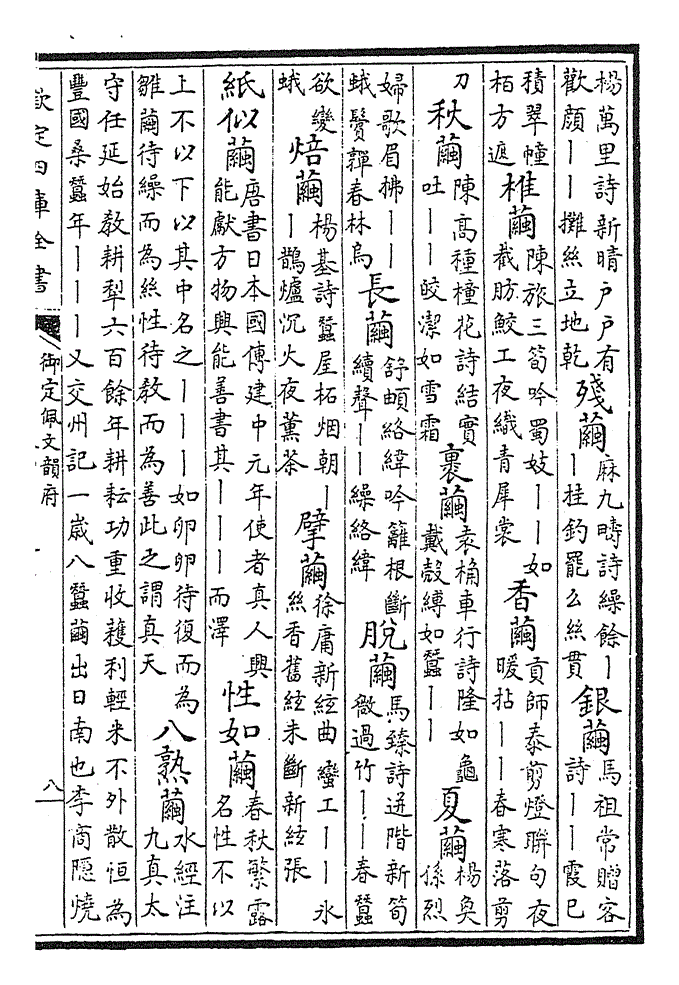 楊萬里詩新晴户户有
歡顔丨丨攤絲立地乾
殘繭
麻九疇詩繰餘丨
丨桂釣罷么絲貫
銀繭
馬祖常贈客
詩丨丨霞巳
積翠幢
栢方遮
椎繭
陳旅三筍吟蜀妓丨丨如
截肪鮫工夜織青犀裳
香繭
貢師泰剪燈聨句夜
暖拈丨丨春寒落剪
刀
秋繭
陳高種橦花詩結實
吐丨丨皎潔如雪霜
裹繭
袁桷車行詩隆如龜
戴殻縛如蠶丨丨
夏繭
楊奐
孫烈
婦歌眉拂丨丨
蛾鬢軃春林烏
長繭
舒頔絡緯吟籬根斷
續聲丨丨繰絡緯
脱繭
馬臻詩迸階新筍
微過竹丨丨春蠶
欲變
蛾
焙繭
楊基詩蠶屋柘烟朝丨
丨鵲爐沉火夜薰茶
擘繭
徐庸新絃曲蠻工丨丨氷
絲香舊絃未斷新絃張
紙似繭
唐書日本國傳建中元年使者真人興
能獻方物興能善書其丨丨丨而澤
性如繭
春秋繁露
名性不以
上不以下以其中名之丨丨丨如卵卵待復而為
雛繭待繰而為絲性待教而為善此之謂真天
八熟繭
水經注
九真太
守任延始教耕犁六百餘年耕耘功重收穫利輕米不外散恒為
豐國桑蠶年丨丨丨又交州記一嵗八蠶繭出日南也李商隱燒
欽定四庫全書
御定佩文韻府
八